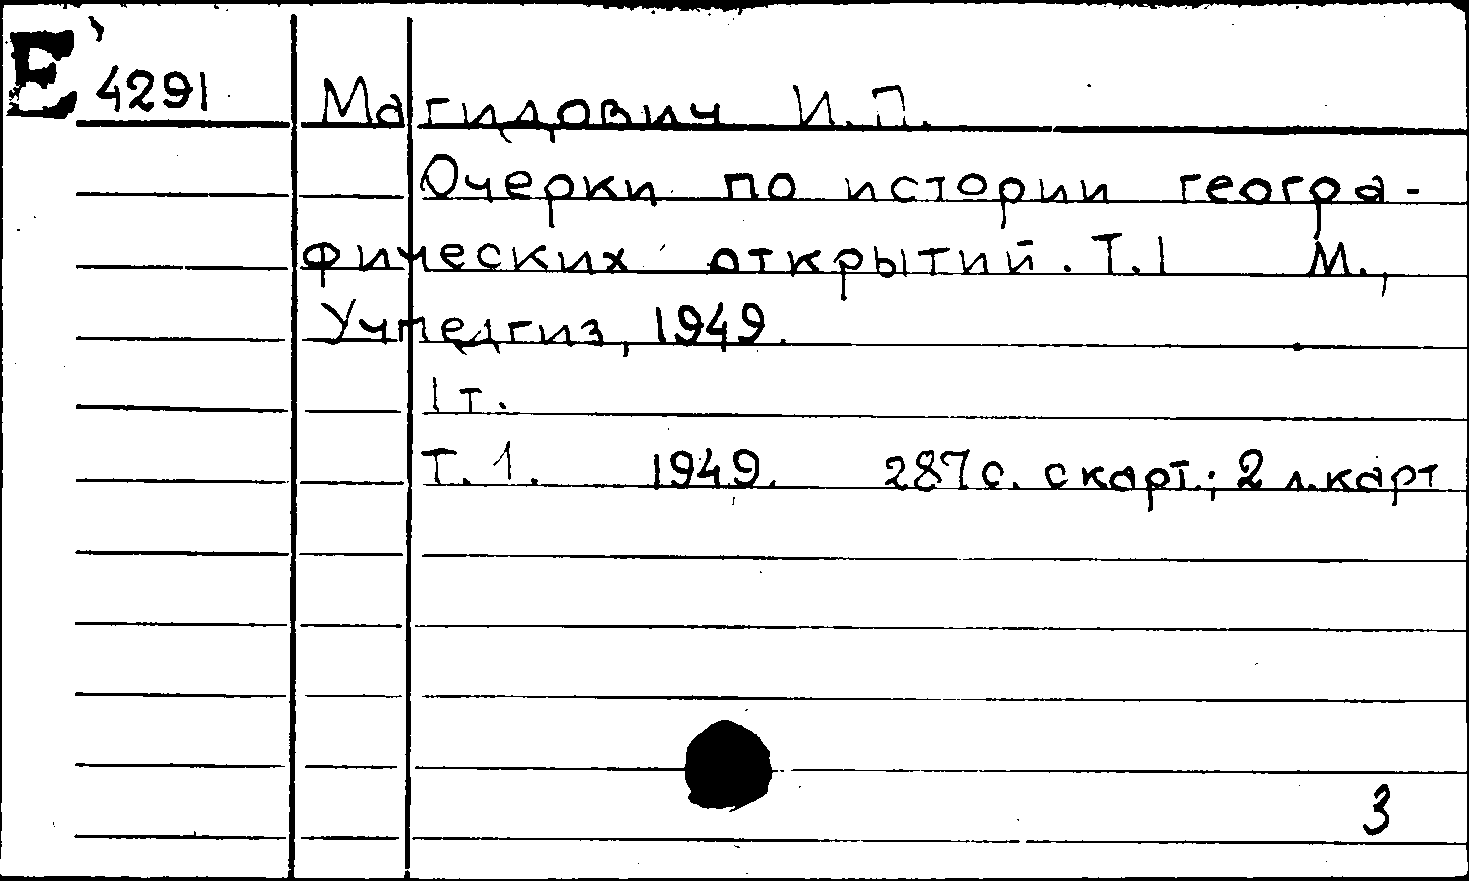 Е 4291 Магидович И.П.
Очерки по истории геогра-
фических открытий. Т.1 М.,
Учпедгиз, 1949.
1 т.
Т. 1. 1949. 287 с. с карт.; 2 л. карт
3